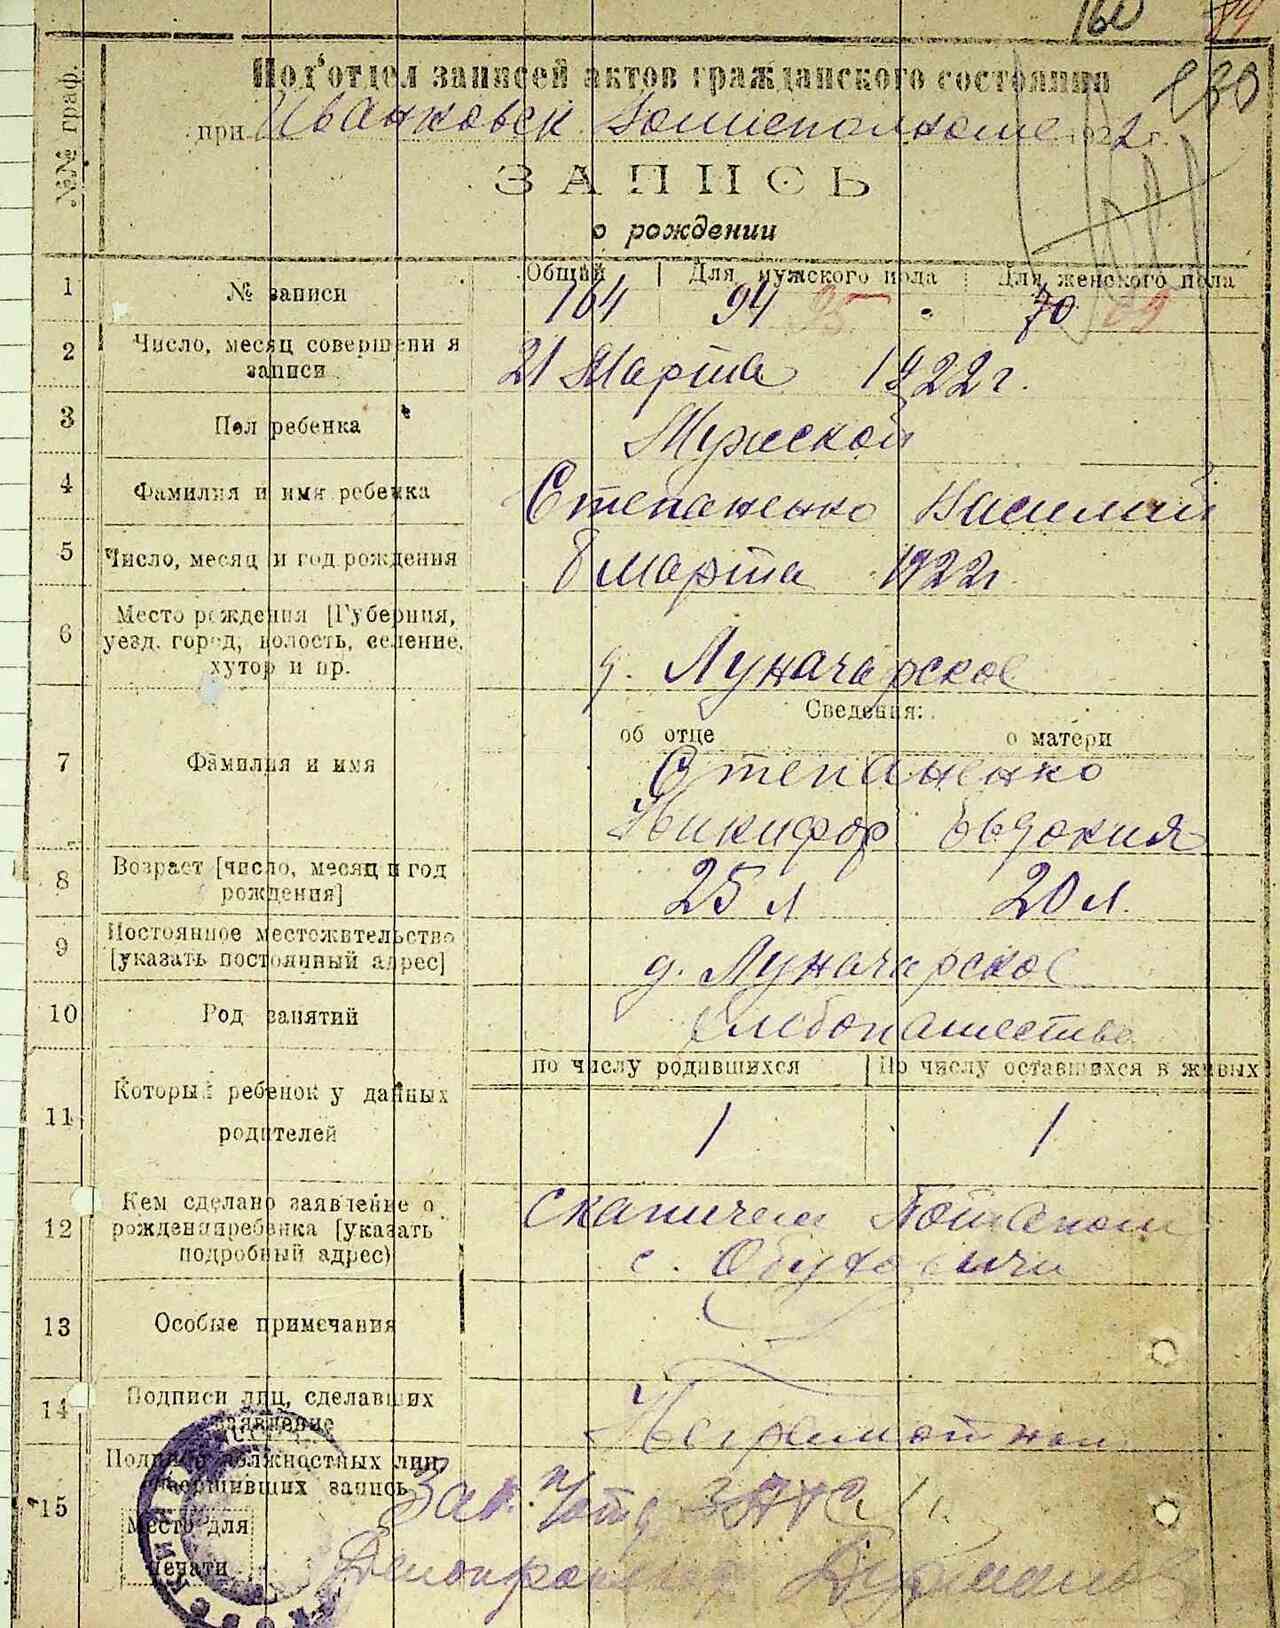 160 84
180
Подотдел записей актов гражданского состояния
при Иванковск. Волисполкоме 1922 г.
ЗАПИСЬ
о рождении
№№ граф.
Общий | Для мужского пола | Для женского пола
1 № записи 164 94 95 70 69
2 Число, месяц совершения записи 21 Марта 1922 г.
3 Пол ребенка Мужской
4 Фамилия и имя ребенка Степаненко Василий
5 Число, месяц и год рождения 8 марта 1922 г.
6 Место рождения [Губерния, уезд, город, волость, селение, хутор и пр. д. Луначарское
Сведения:
об отце о матери
7 Фамилия и имя Степаненко
Никифор Евдокия
8 Возраст [число, месяц и год рождения] 25 л 20 л.
9 Постоянное местожительство [указать постоянный адрес] д. Луначарское
10 Род занятий Хлебопашество
по числу родившихся | По числу оставшихся в живых
11 Который ребенок у данных родителей 1 1
12 Кем сделано заявление о рождении ребенка [указать подробный адрес)
с. Обуховичи
13 Особые примечания
14 Подписи лиц, сделавших заявление Неграмотная
15 Подписи должностных лиц, совершивших запись Зав. ЗАГС
Место для печати Делопроизвод.